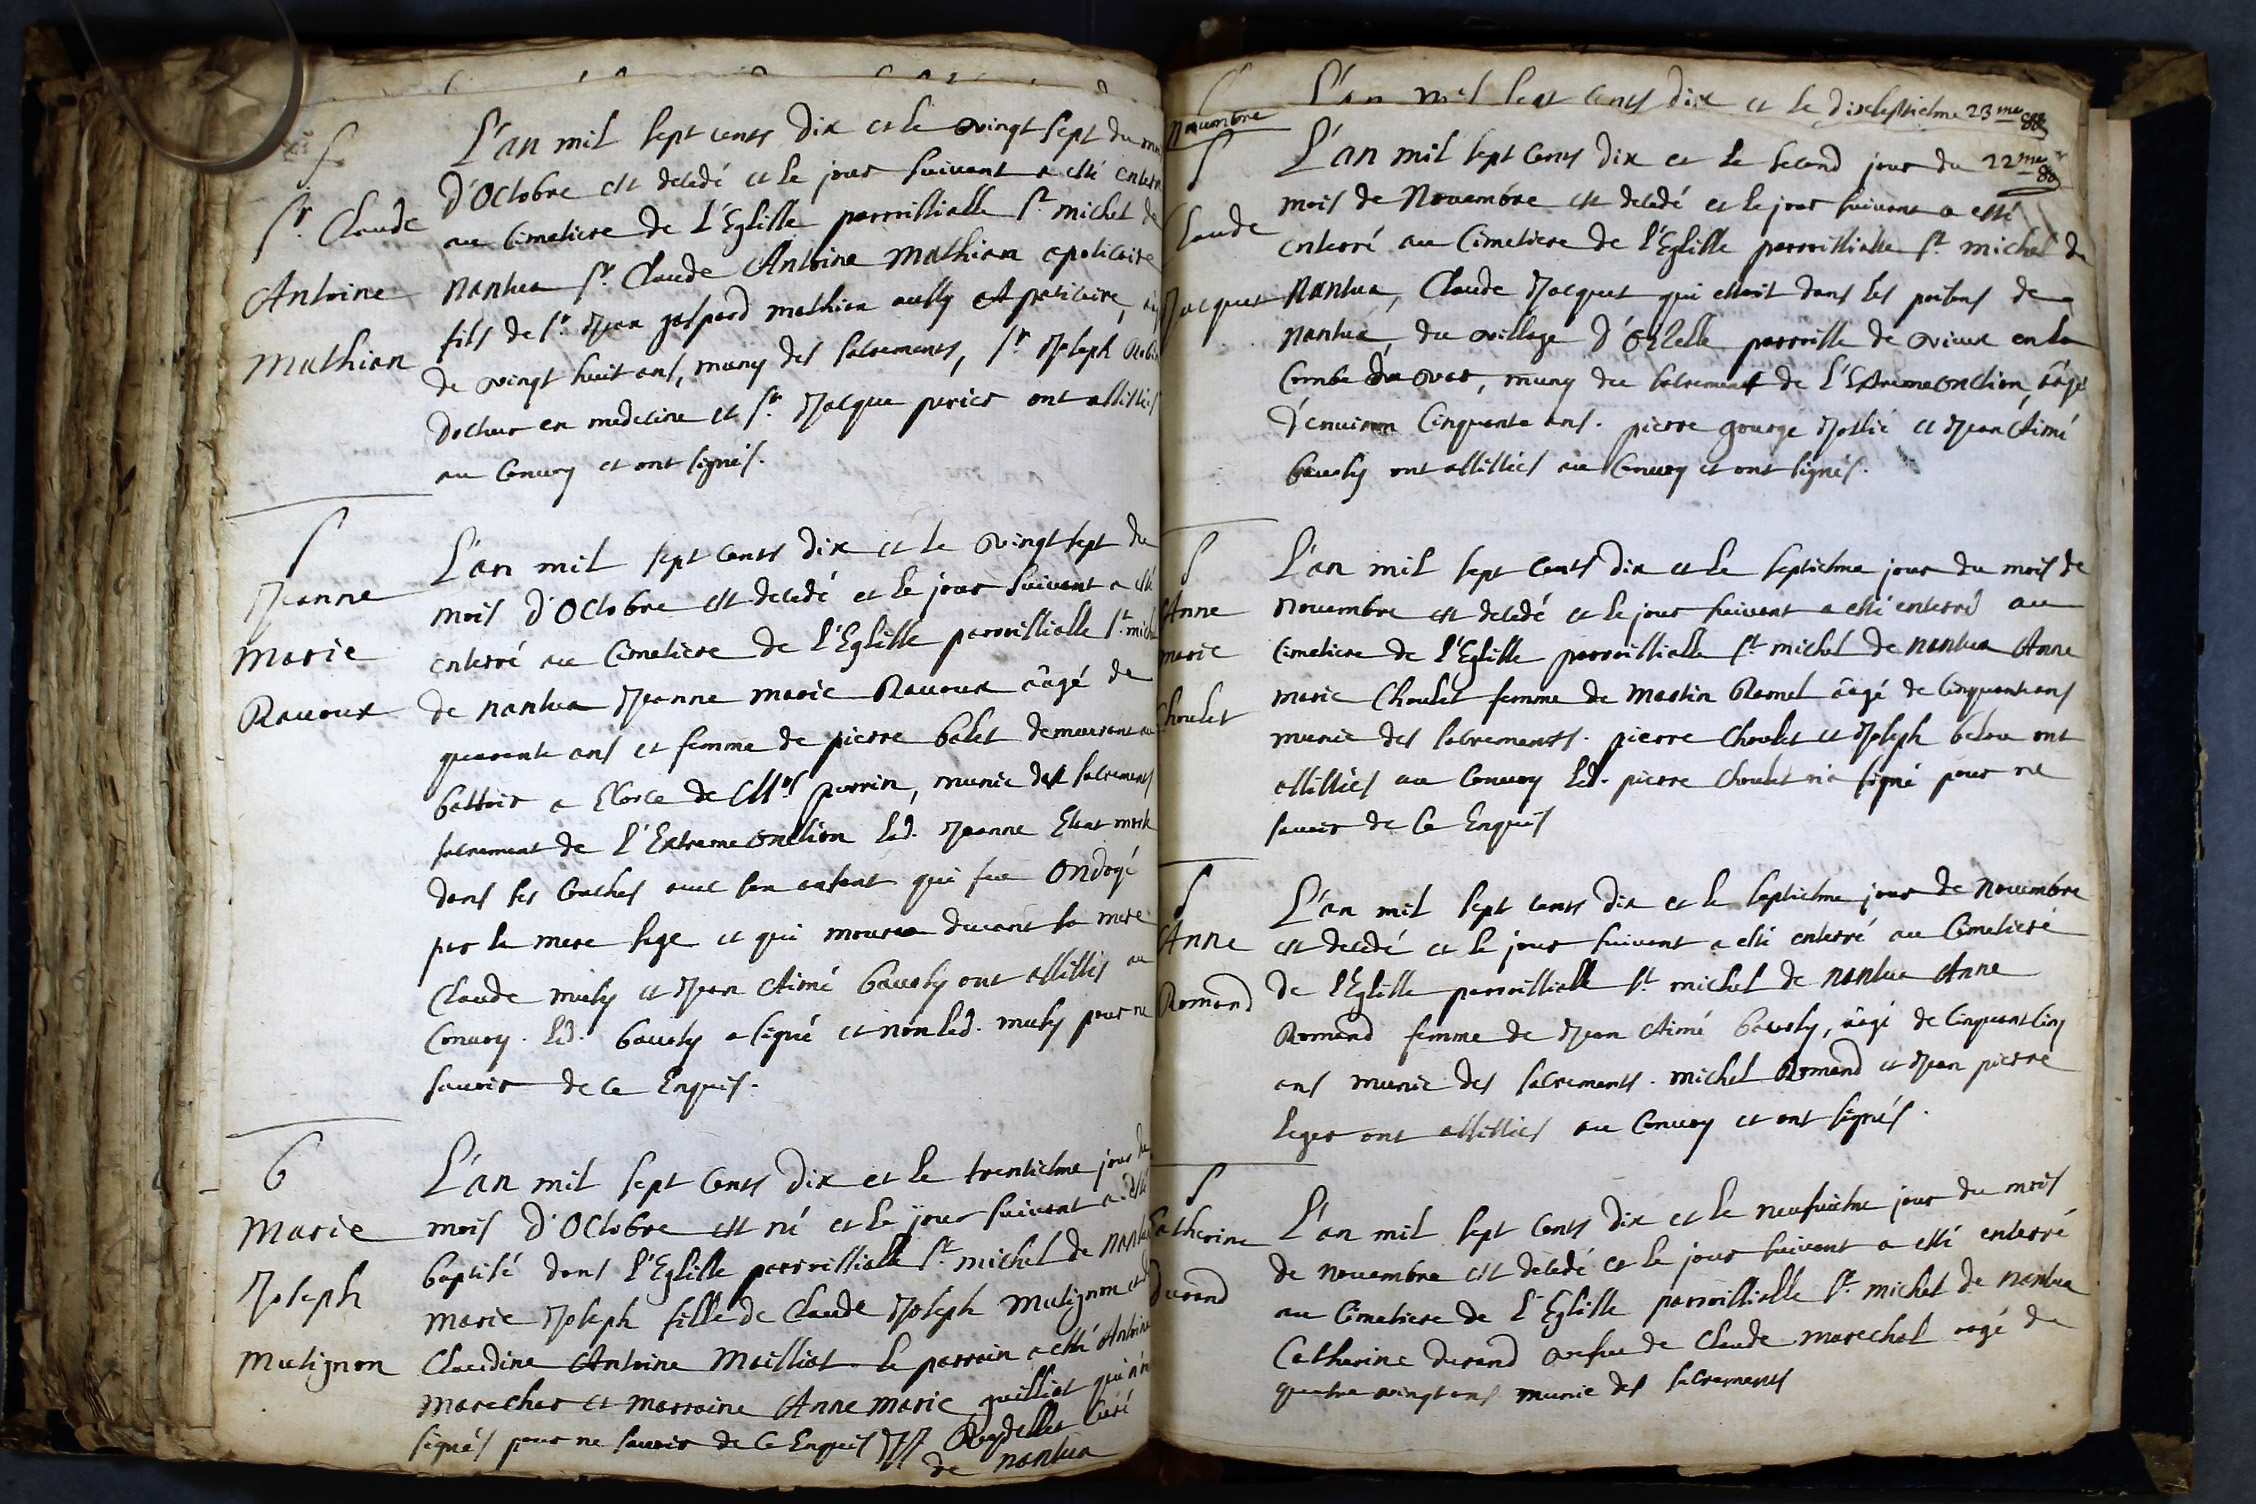 S
Sr. Claude
Antoine
Mathian
L'an mil sept cents dix et le vingt sept du mois
d'Octobre est decedé et le jour suivant a esté enterré
au Cimetiere de l'Eglisse parroissialle St. michel de
nantua Sr. Claude Antoine Mathian apoticaire
fils de Sr. Jean gaspard mathian aussy Apoticaire,
de vingt huit ans, muny des sacrements, Sr. Joseph
docteur en medecine et Sr. Jacque perier ont assistés
au Convoy et ont signés.
S
Jeanne
Marie
Ravoux
L'an mil sept cents dix et le vingt sept du
mois d'Octobre est decedé et le jour suivant a esté
enterré au Cimetiere de l'Eglisse parroissialle St. michel
de nantua Jeanne marie Ravoux aagé de
quarente ans et femme de pierre balet demeurant au
battoir a Ecorce de Mrs. perrin, munie des sacrements
sacrement de l'Extremeonction led. Jeanne Etant morte
dans ses Couches avec son enfant qui fut Ondoyé
par la mere sage et qui mourut devant sa mere
Claude musy et Jean Aimé bavosy ont assistés au
Convoy. led. bavosy a signé et non led. musy pour ne
savoir de ce Enquis.
B
Marie
Joseph
Mutignon
L'an mil sept Cents Dix et le trentiesme jour du
mois d'Octobre est né et le jour suivant a esté
baptisé dans l'Eglisse parroissialle St. michel de nantua
Marie Joseph fille de Claude Joseph Mutignon et de
Claudine Antoine Mailliat le parrain a esté Antoine
Marecher et marraine Anne Marie guilliot qui n'ont
signés pour ne savoir de ce Enquis JJ Reydellet Curé
de nantua
L'an mil sept Cents dix et le dixseptiesme 23me
Novembre
S
Claude
Jacquet
L'an mil sept Cents Dix et le second jour du 22me
mois de Novembre est decedé et le jour suivant a esté
enterré au Cimetiere de l'Eglisse parroissialle St. michel de
Nantua, Claude Jacquet qui estoit dans les prisons de
nantua, du village d'Ozelle parroisse de vieux en la
Combe du var, muny du sacrement de l'Extremeonction, aagé
d'environ Cinquante ans. pierre gourge Jollié et Jean Aimé
bavosy ont assistés au Convoy et ont signés.
S
Anne
marie
Choulet
L'an mil sept Cents Dix et le septiesme jour du mois de
Novembre est decedé et le jour suivant a esté enterré au
Cimetiere de l'Eglisse parroissialle St. michel de nantua Anne
marie Choulet femme de Martin Ramel aagé de Cinquant ans
munie des sacrements. pierre Choulet et Joseph ont
assistés au Convoy led. pierre Choulet n'a signé pour ne
savoir de Ce Enquis
S
Anne
Romand
L'an mil sept cents dix et le septiesme jour de Novembre
est decedé et le jour suivant a esté enterré au Cimetiere
de l'Eglisse parroissialle St. michel de nantua Anne
Romand femme de Jean Aimé bavosy, aagé de Cinquant Cinq
ans munie des sacrements. michel Romand et Jean pierre
leger ont assistés au Convoy et ont signés.
S
Catherine
durand
L'an mil sept Cents Dix et le neufviesme jour du mois
de novembre est decedé et le jour suivant a esté enterré
au Cimetiere de l'Eglisse parroissialle St. michel de nantua
Catherine durand vefve de Claude marechal aagé de
quatre vingt ans munie des sacrements